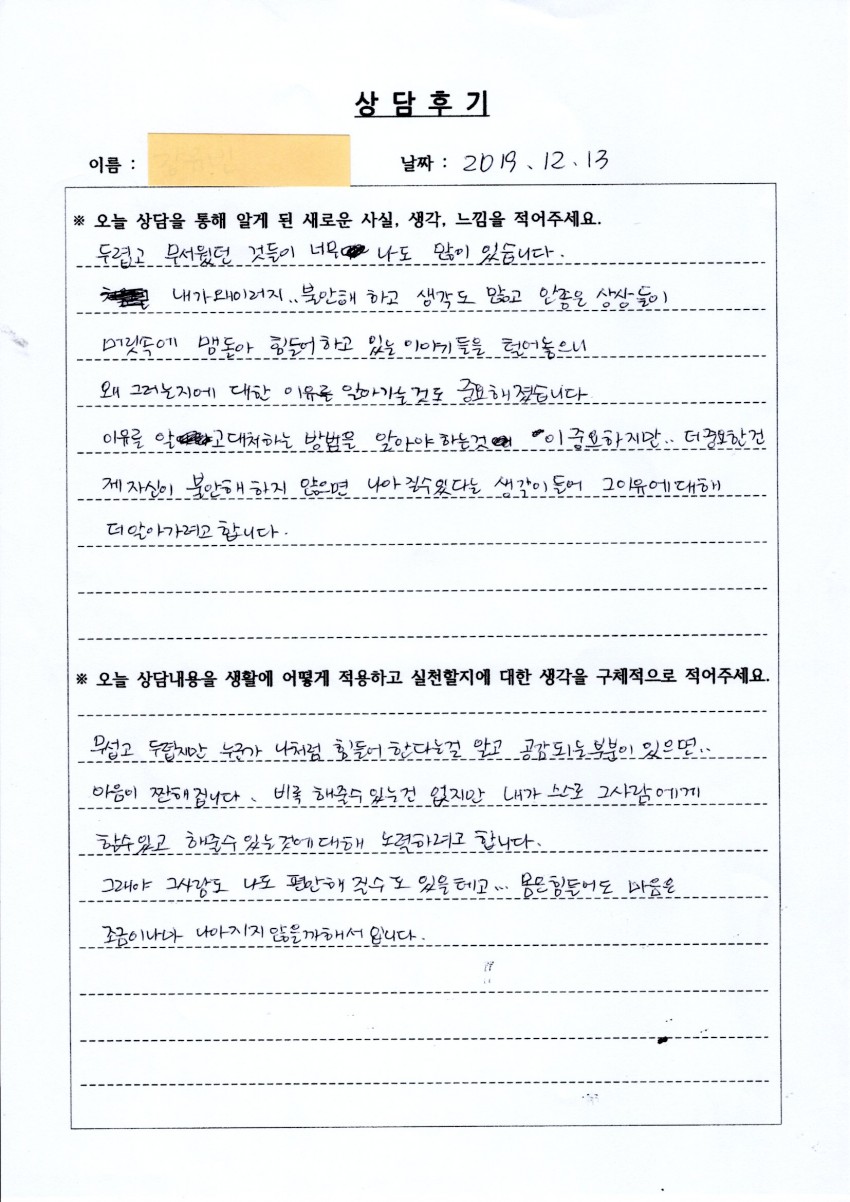 상 담 후 기
이름 :
날짜 : 2019. 12. 13
※ 오늘 상담을 통해 알게 된 새로운 사실, 생각, 느낌을 적어주세요.
두렵고 무서웠던 것들이 너무 나도 많이 있습니다.
내가왜이러지.. 불안해 하고 생각도 많고 안좋은 상상들이
머릿속에 맴돌아 힘들어하고 있는 이야기들을 털어놓으니
왜 그러는지에 대한 이유를 알아가는것도 중요해졌습니다.
이유를 알고 대처하는 방법을 알아야 하는것 이 중요하지만.. 더중요한건
제 자신이 불안해 하지 않으면 나아질수있다는 생각이들어 그이유에대해
더알아가려고합니다.
※ 오늘 상담내용을 생활에 어떻게 적용하고 실천할지에 대한 생각을 구체적으로 적어주세요.
무섭고 두렵지만 누군가 나처럼 힘들어한다는걸 알고 공감되는부분이 있으면..
마음이 짠해집니다. 비록 해줄수있는건 없지만 내가 스스로 그사람에게
할수있고 해줄수있는것에대해 노력하려고 합니다.
그래야 그사람도 나도 편안해 질수도 있을테고... 몸은힘들어도 마음은
조금이나마 나아지지않을까해서입니다.